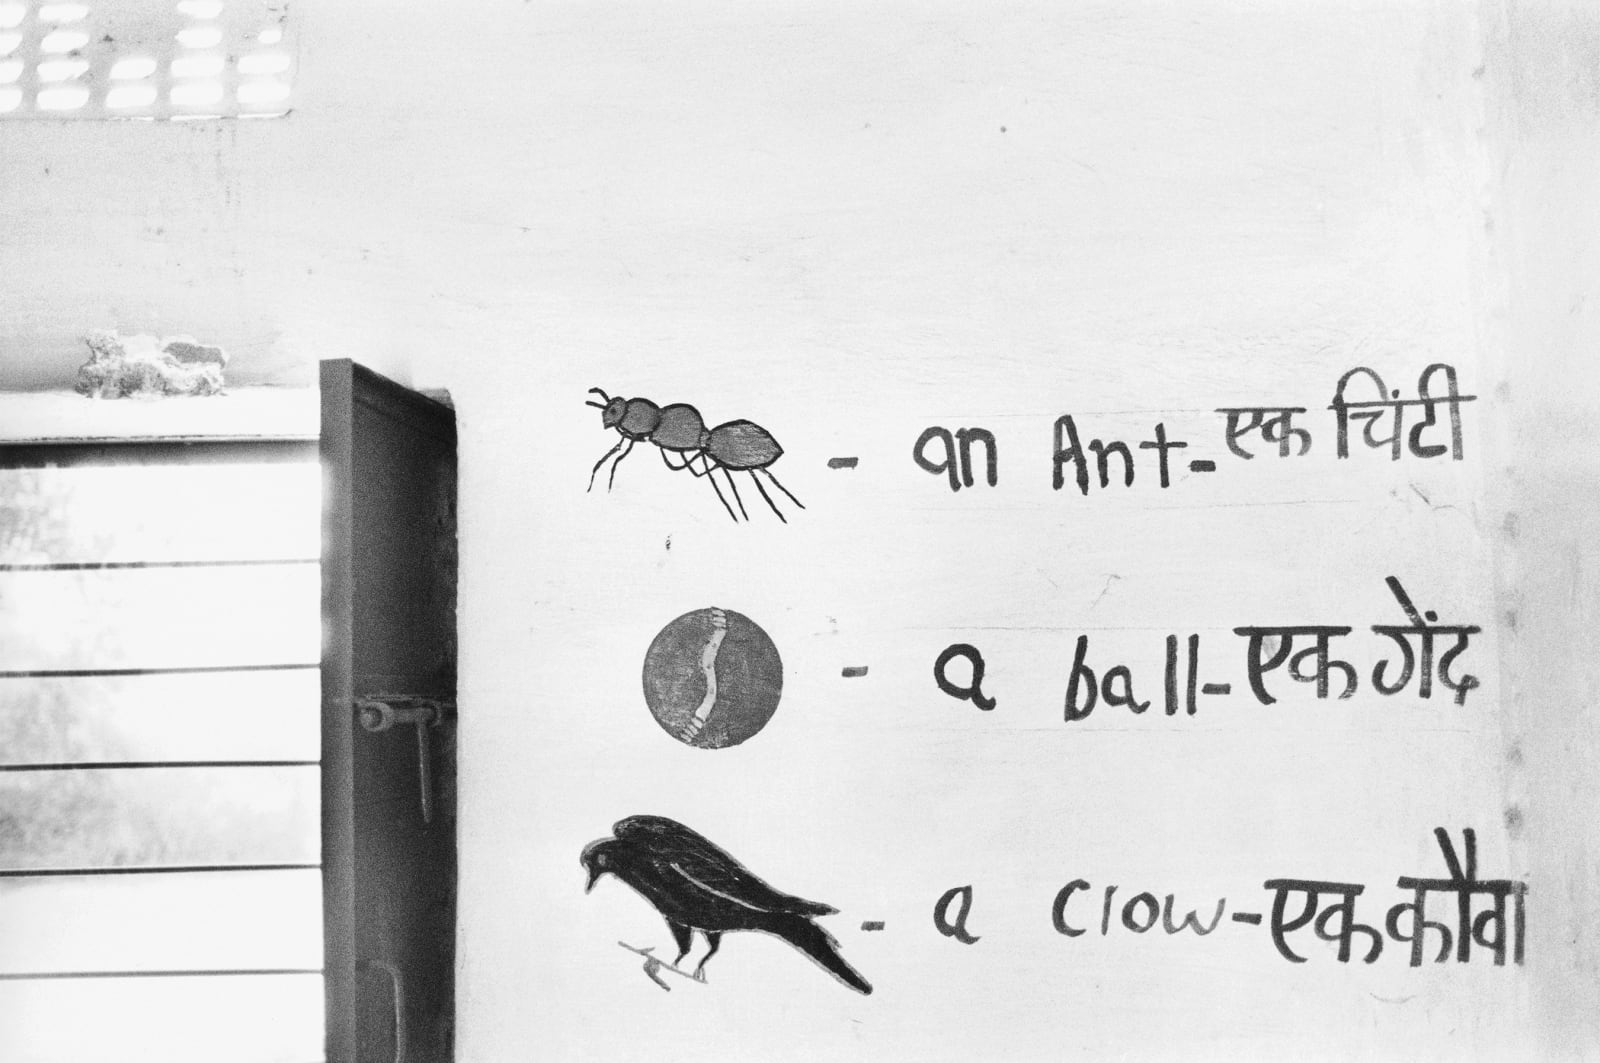 - an Ant - एक चिंटी
- a ball - एक गेंद
- a crow - एक कौवा